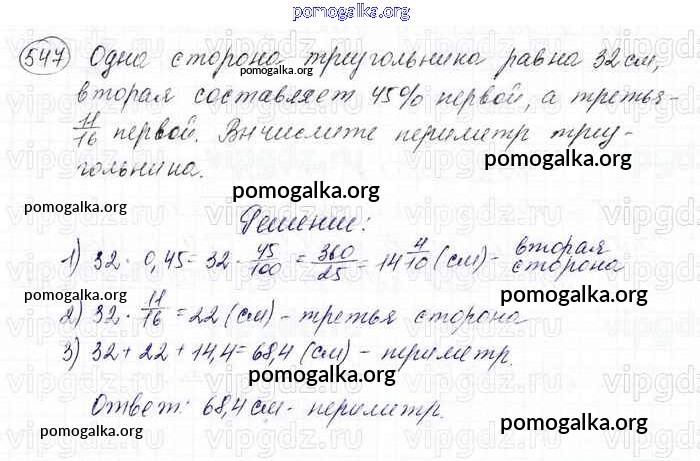 pomogalka.org
547 Одна сторона треугольника равна 32 см,
pomogalka.org
вторая составляет 45% первой, а третья-
11/16 первой. Вычислите периметр треу-
pomogalka.org
гольника.
pomogalka.org
pomogalka.org
Решение:
1) 32 · 0,45 = 32 · 45/100 = 360/25 = 14 4/10 (см) - вторая сторона
pomogalka.org
pomogalka.org
2) 32 · 11/16 = 22 (см) - третья сторона
pomogalka.org
3) 32 + 22 + 14,4 = 68,4 (см) - периметр.
pomogalka.org
Ответ: 68,4 см - периметр.
pomogalka.org
pomogalka.org